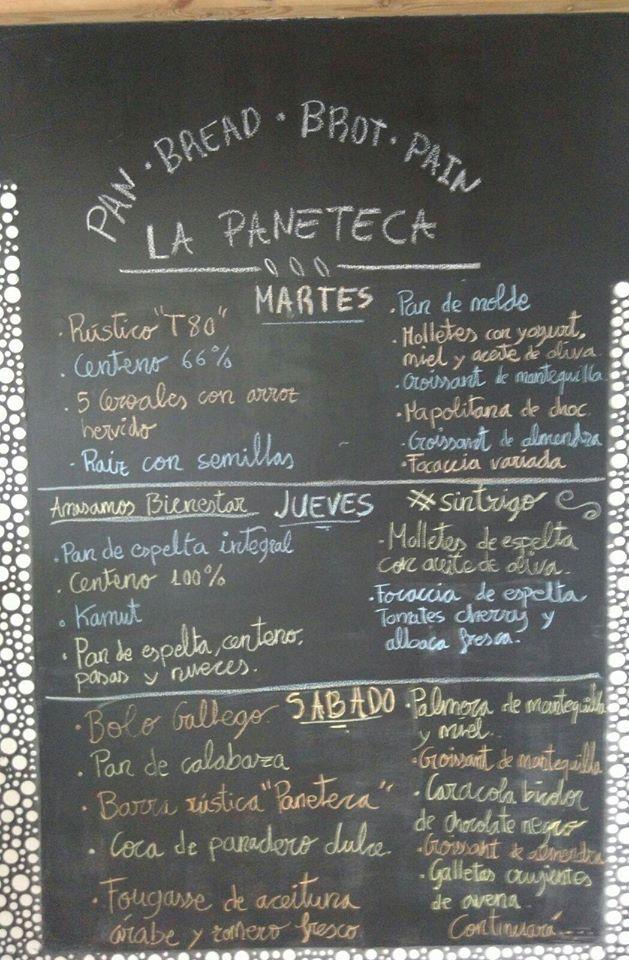 PAN · BREAD · BROT · PAIN
LA PANETECA
MARTES
· Rústico "T80"
· Centeno 66%
· 5 Cereales con arroz
hervido
· Raíz con semillas
· Pan de molde
· Molletes con yogurt,
miel y aceite de oliva.
· Croissant de mantequilla
· Napolitana de choc.
· Croissant de almendra
· Focaccia variada
Amasamos Bienestar
JUEVES
#sintrigo
· Pan de espelta integral
· Centeno 100%
· Kamut
· Pan de espelta, centeno,
pasas y nueces.
· Molletes de espelta
con aceite de oliva.
· Focaccia de espelta
Tomates cherrys y
albaca fresca.
SÁBADO
· Bolo Gallego
· Pan de calabaza
· Barra rústica "Paneteca"
· Coca de panadero dulce
· Fougasse de aceituna
árabe y romero fresco
· Palmera de mantequilla
y miel.
· Croissant de mantequilla
· Caracola bicolor
de chocolate negro
· Croissant de almendra
· Galletas crujientes
de avena.
Continuará...